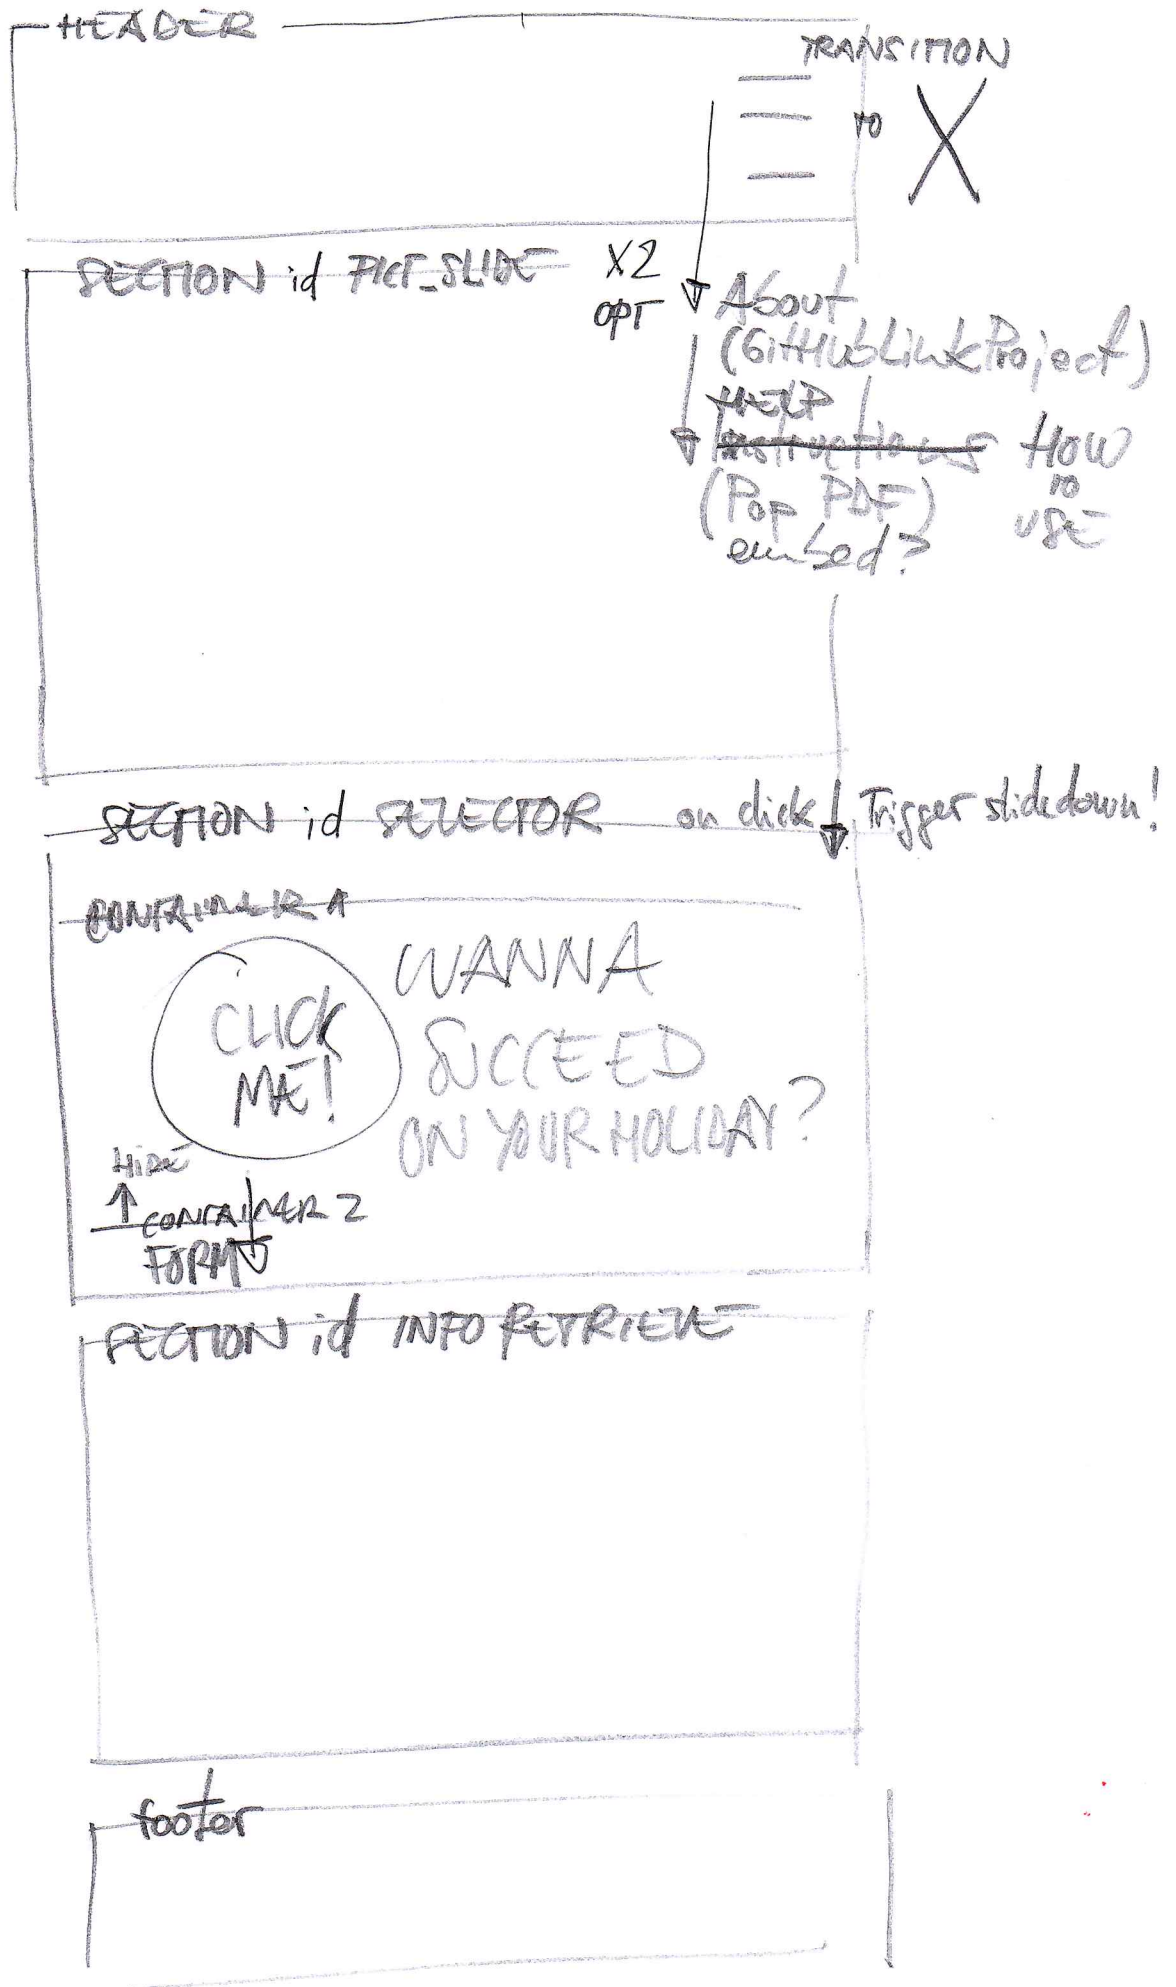 HEADER
TRANSITION
TO X
SECTION id PICT_SLIDE
X2
OPT
About
(GitHubLinkProject)
HELP
Instructions HOW
TO
USE
(Pop PDF)
embed?
SECTION id SELECTOR on click Trigger slidedown!
CONTAINER 1
CLICK
ME!
WANNA
SUCCEED
ON YOUR HOLIDAY?
HIDE
CONTAINER 2
FORM
SECTION id INFO RETRIEVE
footer